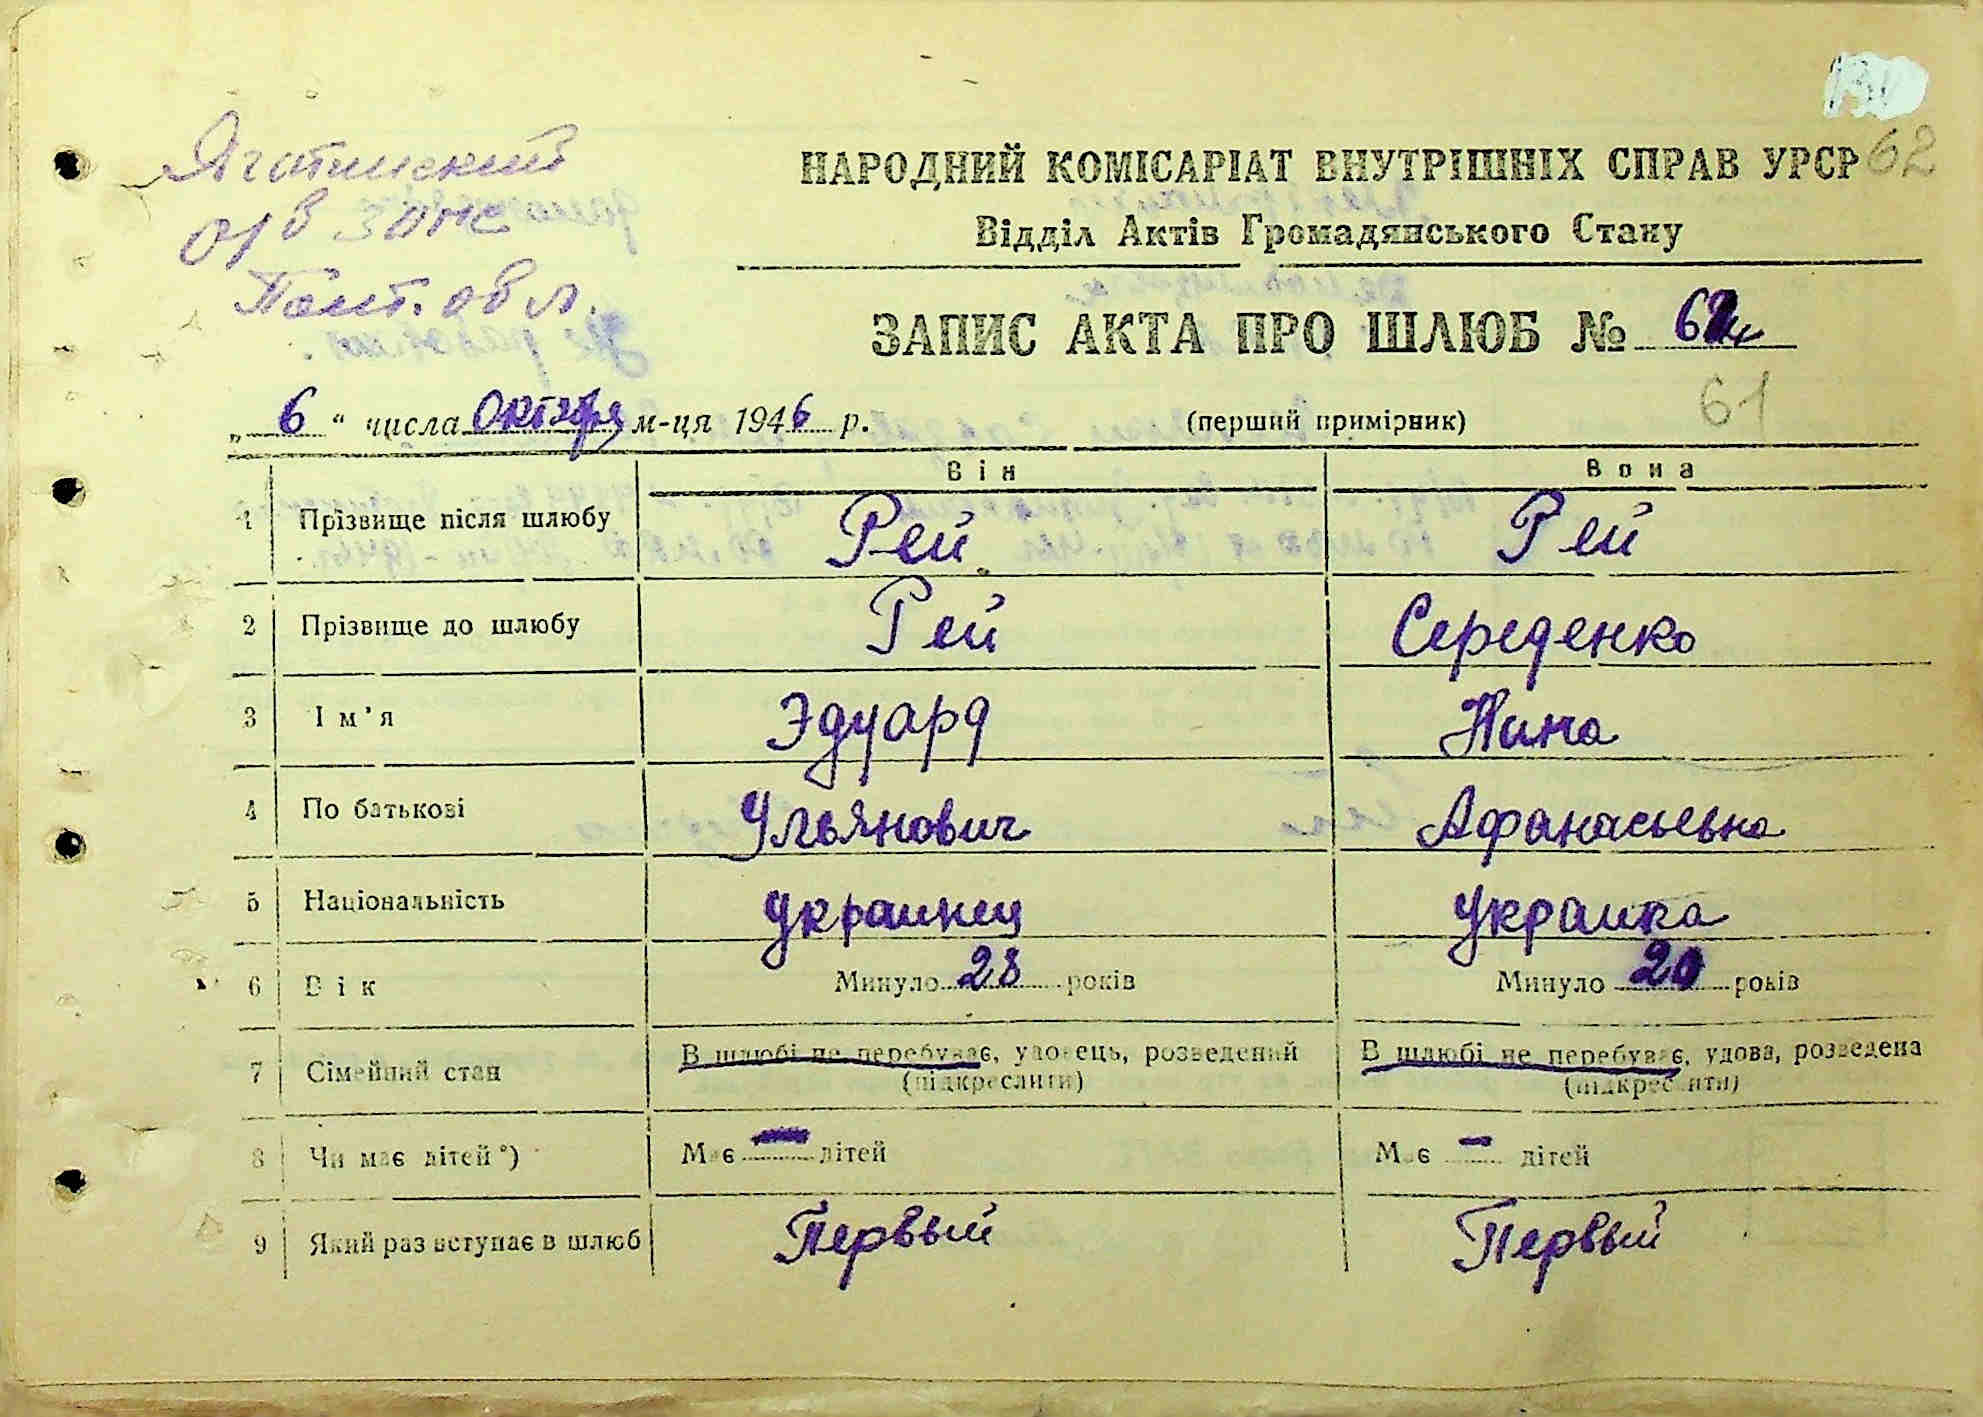 Яготинский
О/в ЗАГС
Полт. обл.
НАРОДНИЙ КОМІСАРІАТ ВНУТРІШНІХ СПРАВ УРСР 62
Відділ Актів Громадянського Стану
ЗАПИС АКТА ПРО ШЛЮБ №
„ 6 “ числа Октября м-ця 1946 р. (перший примірник) 61
Він Вона
1 Прізвище після шлюбу Рей Рей
2 Прізвище до шлюбу Рей Середенко
3 Ім'я Эдуард Нина
4 По батькові Ульянович Афанасьевна
5 Національність украинец украинка
6 Вік Минуло 28 років Минуло 20 років
7 Сімейний стан В шлюбі не перебуває, удовець, розведений В шлюбі не перебуває, удова, розведена
(підкреслити) (підкреслити)
8 Чи має дітей*) Має — дітей Має — дітей
9 Який раз вступає в шлюб Первый Первый